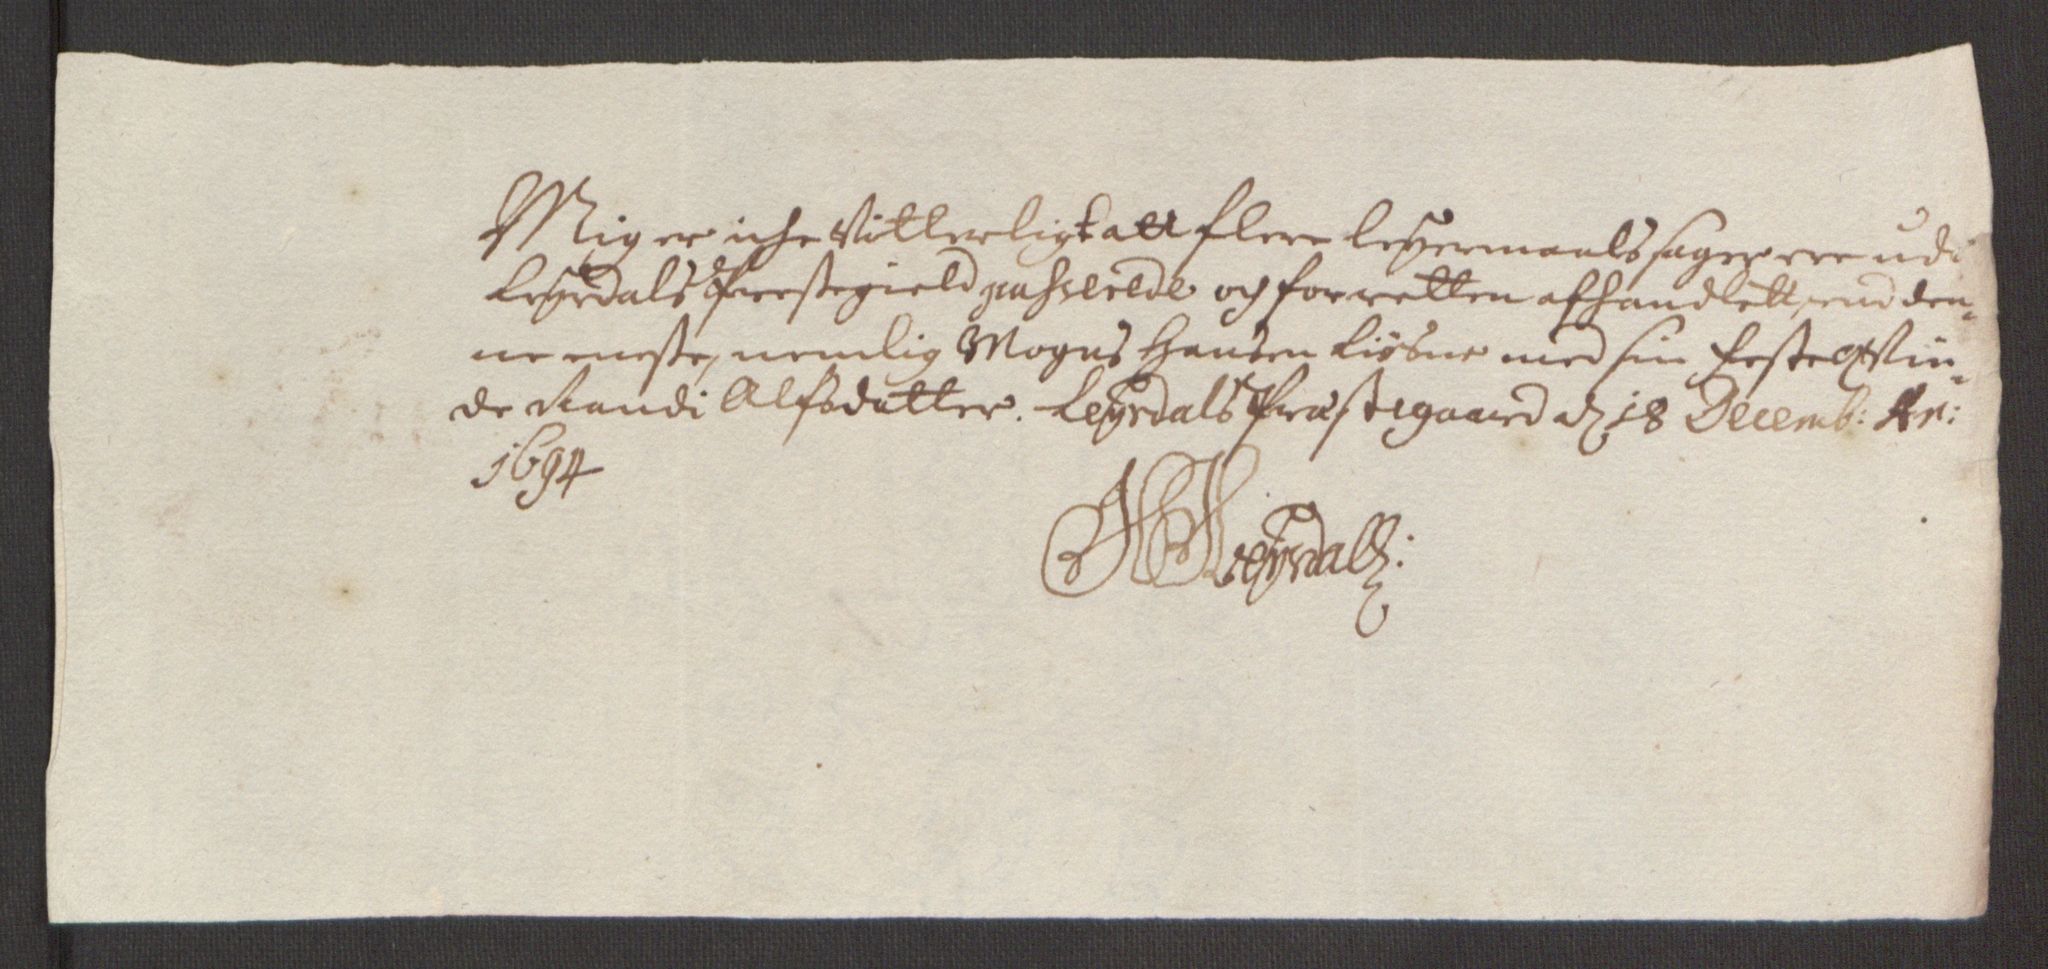 Mig er iche Vitterligt att flere leyermaals sager ere udi
Leyrdals Prestegield passerede och for retten afhandlett, end den-
ne eneste, nemlig Mogns Hansen Liøsne med sin festeqvin-
de Randi Alfsdatter. Leyrdals Præstegaard d 18 Decemb: An:
1694
Leyrdall: